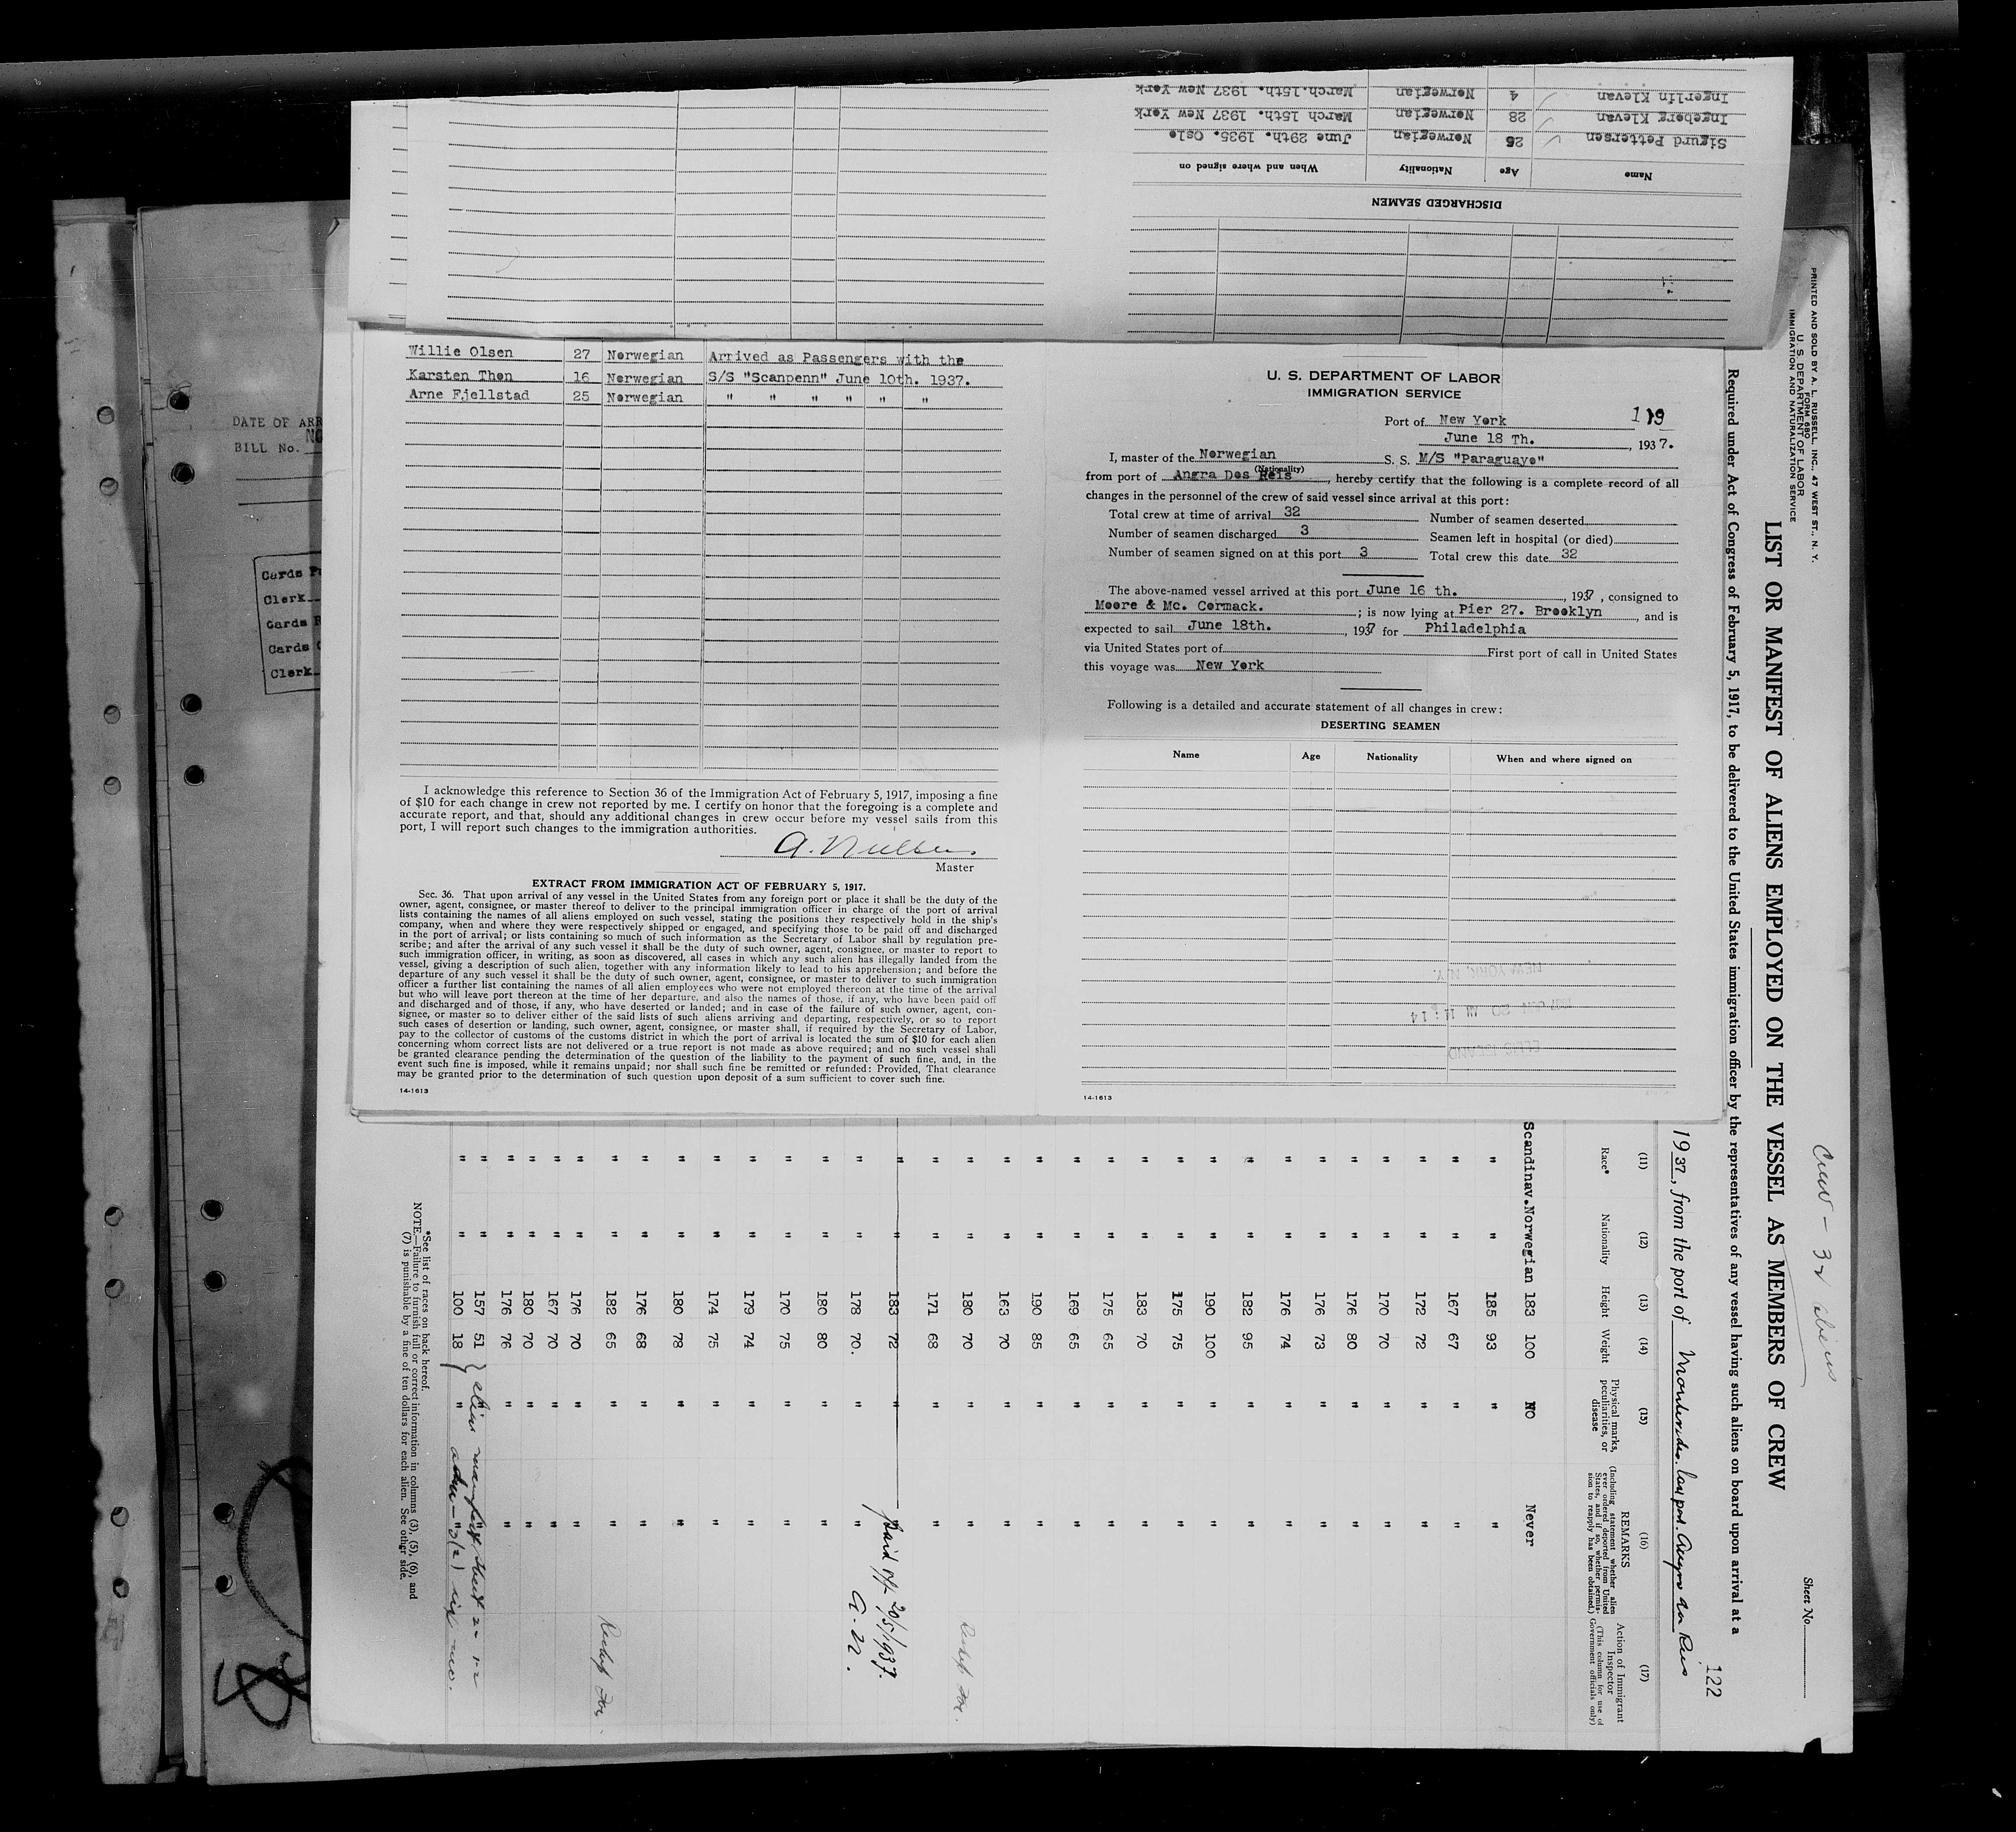 Ingerlin Klevan 4 Norwegian March.15th. 1937 New York
Ingeberg Klevan 28 Norwegian March 15th. 1937 New York
Sigurd Pettersen 26 Norwegian June 29th. 1935. Oslo
Name Age Nationality When and where signed on
DISCHARGED SEAMEN
DATE OF ARR
BILL No.
Cards
Clerk
Cards
Cards
Clerk
Willie Olsen 27 Norwegian Arrived as Passengers with the
Karsten Then 16 Norwegian S/S "Scanpenn" June 10th. 1937.
Arne Fjellstad 25 Norwegian " " " " " "
I acknowledge this reference to Section 36 of the Immigration Act of February 5, 1917, imposing a fine
of $10 for each change in crew not reported by me. I certify on honor that the foregoing is a complete and
accurate report, and that, should any additional changes in crew occur before my vessel sails from this
port, I will report such changes to the immigration authorities.
Master
EXTRACT FROM IMMIGRATION ACT OF FEBRUARY 5, 1917.
Sec. 36. That upon arrival of any vessel in the United States from any foreign port or place it shall be the duty of the
owner, agent, consignee, or master thereof to deliver to the principal immigration officer in charge of the port of arrival
lists containing the names of all aliens employed on such vessel, stating the positions they respectively hold in the ship's
company, when and where they were respectively shipped or engaged, and specifying those to be paid off and discharged
in the port of arrival; or lists containing so much of such information as the Secretary of Labor shall by regulation pre-
scribe; and after the arrival of any such vessel it shall be the duty of such owner, agent, consignee, or master to report to
such immigration officer, in writing, as soon as discovered, all cases in which any such alien has illegally landed from the
vessel, giving a description of such alien, together with any information likely to lead to his apprehension; and before the
departure of any such vessel it shall be the duty of such owner, agent, consignee, or master to deliver to such immigration
officer a further list containing the names of all alien employees who were not employed thereon at the time of the arrival
but who will leave port thereon at the time of her departure, and also the names of those, if any, who have been paid off
and discharged and of those, if any, who have deserted or landed; and in case of the failure of such owner, agent, con-
signee, or master so to deliver either of the said lists of such aliens arriving and departing, respectively, or so to report
such cases of desertion or landing, such owner, agent, consignee, or master shall, if required by the Secretary of Labor,
pay to the collector of customs of the customs district in which the port of arrival is located the sum of $10 for each alien
concerning whom correct lists are not delivered or a true report is not made as above required; and no such vessel shall
be granted clearance pending the determination of the question of the liability to the payment of such fine, and, in the
event such fine is imposed, while it remains unpaid; nor shall such fine be remitted or refunded: Provided, That clearance
may be granted prior to the determination of such question upon deposit of a sum sufficient to cover such fine.
14-1613
U. S. DEPARTMENT OF LABOR
IMMIGRATION SERVICE
Port of New York 119
June 18 Th., 1937.
I, master of the Norwegian S. S. M/S "Paraguayo"
(Nationality)
from port of Angra Dos Reis, hereby certify that the following is a complete record of all
changes in the personnel of the crew of said vessel since arrival at this port:
Total crew at time of arrival 32 Number of seamen deserted
Number of seamen discharged 3 Seamen left in hospital (or died)
Number of seamen signed on at this port 3 Total crew this date 32
The above-named vessel arrived at this port June 16 th., 1937, consigned to
Moore & Mc. Cormack.; is now lying at Pier 27. Brooklyn, and is
expected to sail June 18th., 1937 for Philadelphia
via United States port of First port of call in United States
this voyage was New York
Following is a detailed and accurate statement of all changes in crew:
DESERTING SEAMEN
Name Age Nationality When and where signed on
NEW YORK, N.Y.
ELLIS ISLAND
14-1613
PRINTED AND SOLD BY A. L. RUSSELL, INC., 47 WEST ST., N. Y.
FORM 680
U. S. DEPARTMENT OF LABOR
IMMIGRATION AND NATURALIZATION SERVICE
Crew - 32 aliens
Sheet No.
LIST OR MANIFEST OF ALIENS EMPLOYED ON THE VESSEL AS MEMBERS OF CREW
Required under Act of Congress of February 5, 1917, to be delivered to the United States immigration officer by the representatives of any vessel having such aliens on board upon arrival at a
122
1937, from the port of
(11) (12) (13) (14) (15) (16) (17)
Race* Nationality Height Weight Physical marks, peculiarities, or disease REMARKS (Including statement whether alien ever ordered deported from United States, and if so, whether permission to reapply has been obtained.) Action of Immigrant Inspector (This column for use of Government officials only)
Scandinav. Norwegian 183 100 NO Never
" " 185 93 " "
" " 167 67 " "
" " 172 72 " "
" " 170 70 " "
" " 176 80 " "
" " 176 73 " "
" " 176 74 " "
" " 182 95 " "
" " 190 100 " "
" " 175 75 " "
" " 183 70 " "
" " 175 65 " "
" " 169 65 " "
" " 190 85 " "
" " 163 70 " "
" " 180 70 " "
" " 171 68 " "
" " 183 72 " " Paid off 20/5/1937.
" " 178 70. " " A. N.
" " 180 80 " "
" " 170 75 " "
" " 179 74 " "
" " 174 75 " "
" " 180 78 " "
" " 176 68 " "
" " 182 65 " "
" " 176 70 " "
" " 167 70 " "
" " 180 70 " "
" " 176 76 " "
" " 157 51 "
" " 100 18 "
*See list of races on back hereof.
NOTE.—Failure to furnish full or correct information in columns (3), (5), (6), and
(7) is punishable by a fine of ten dollars for each alien. See other side.